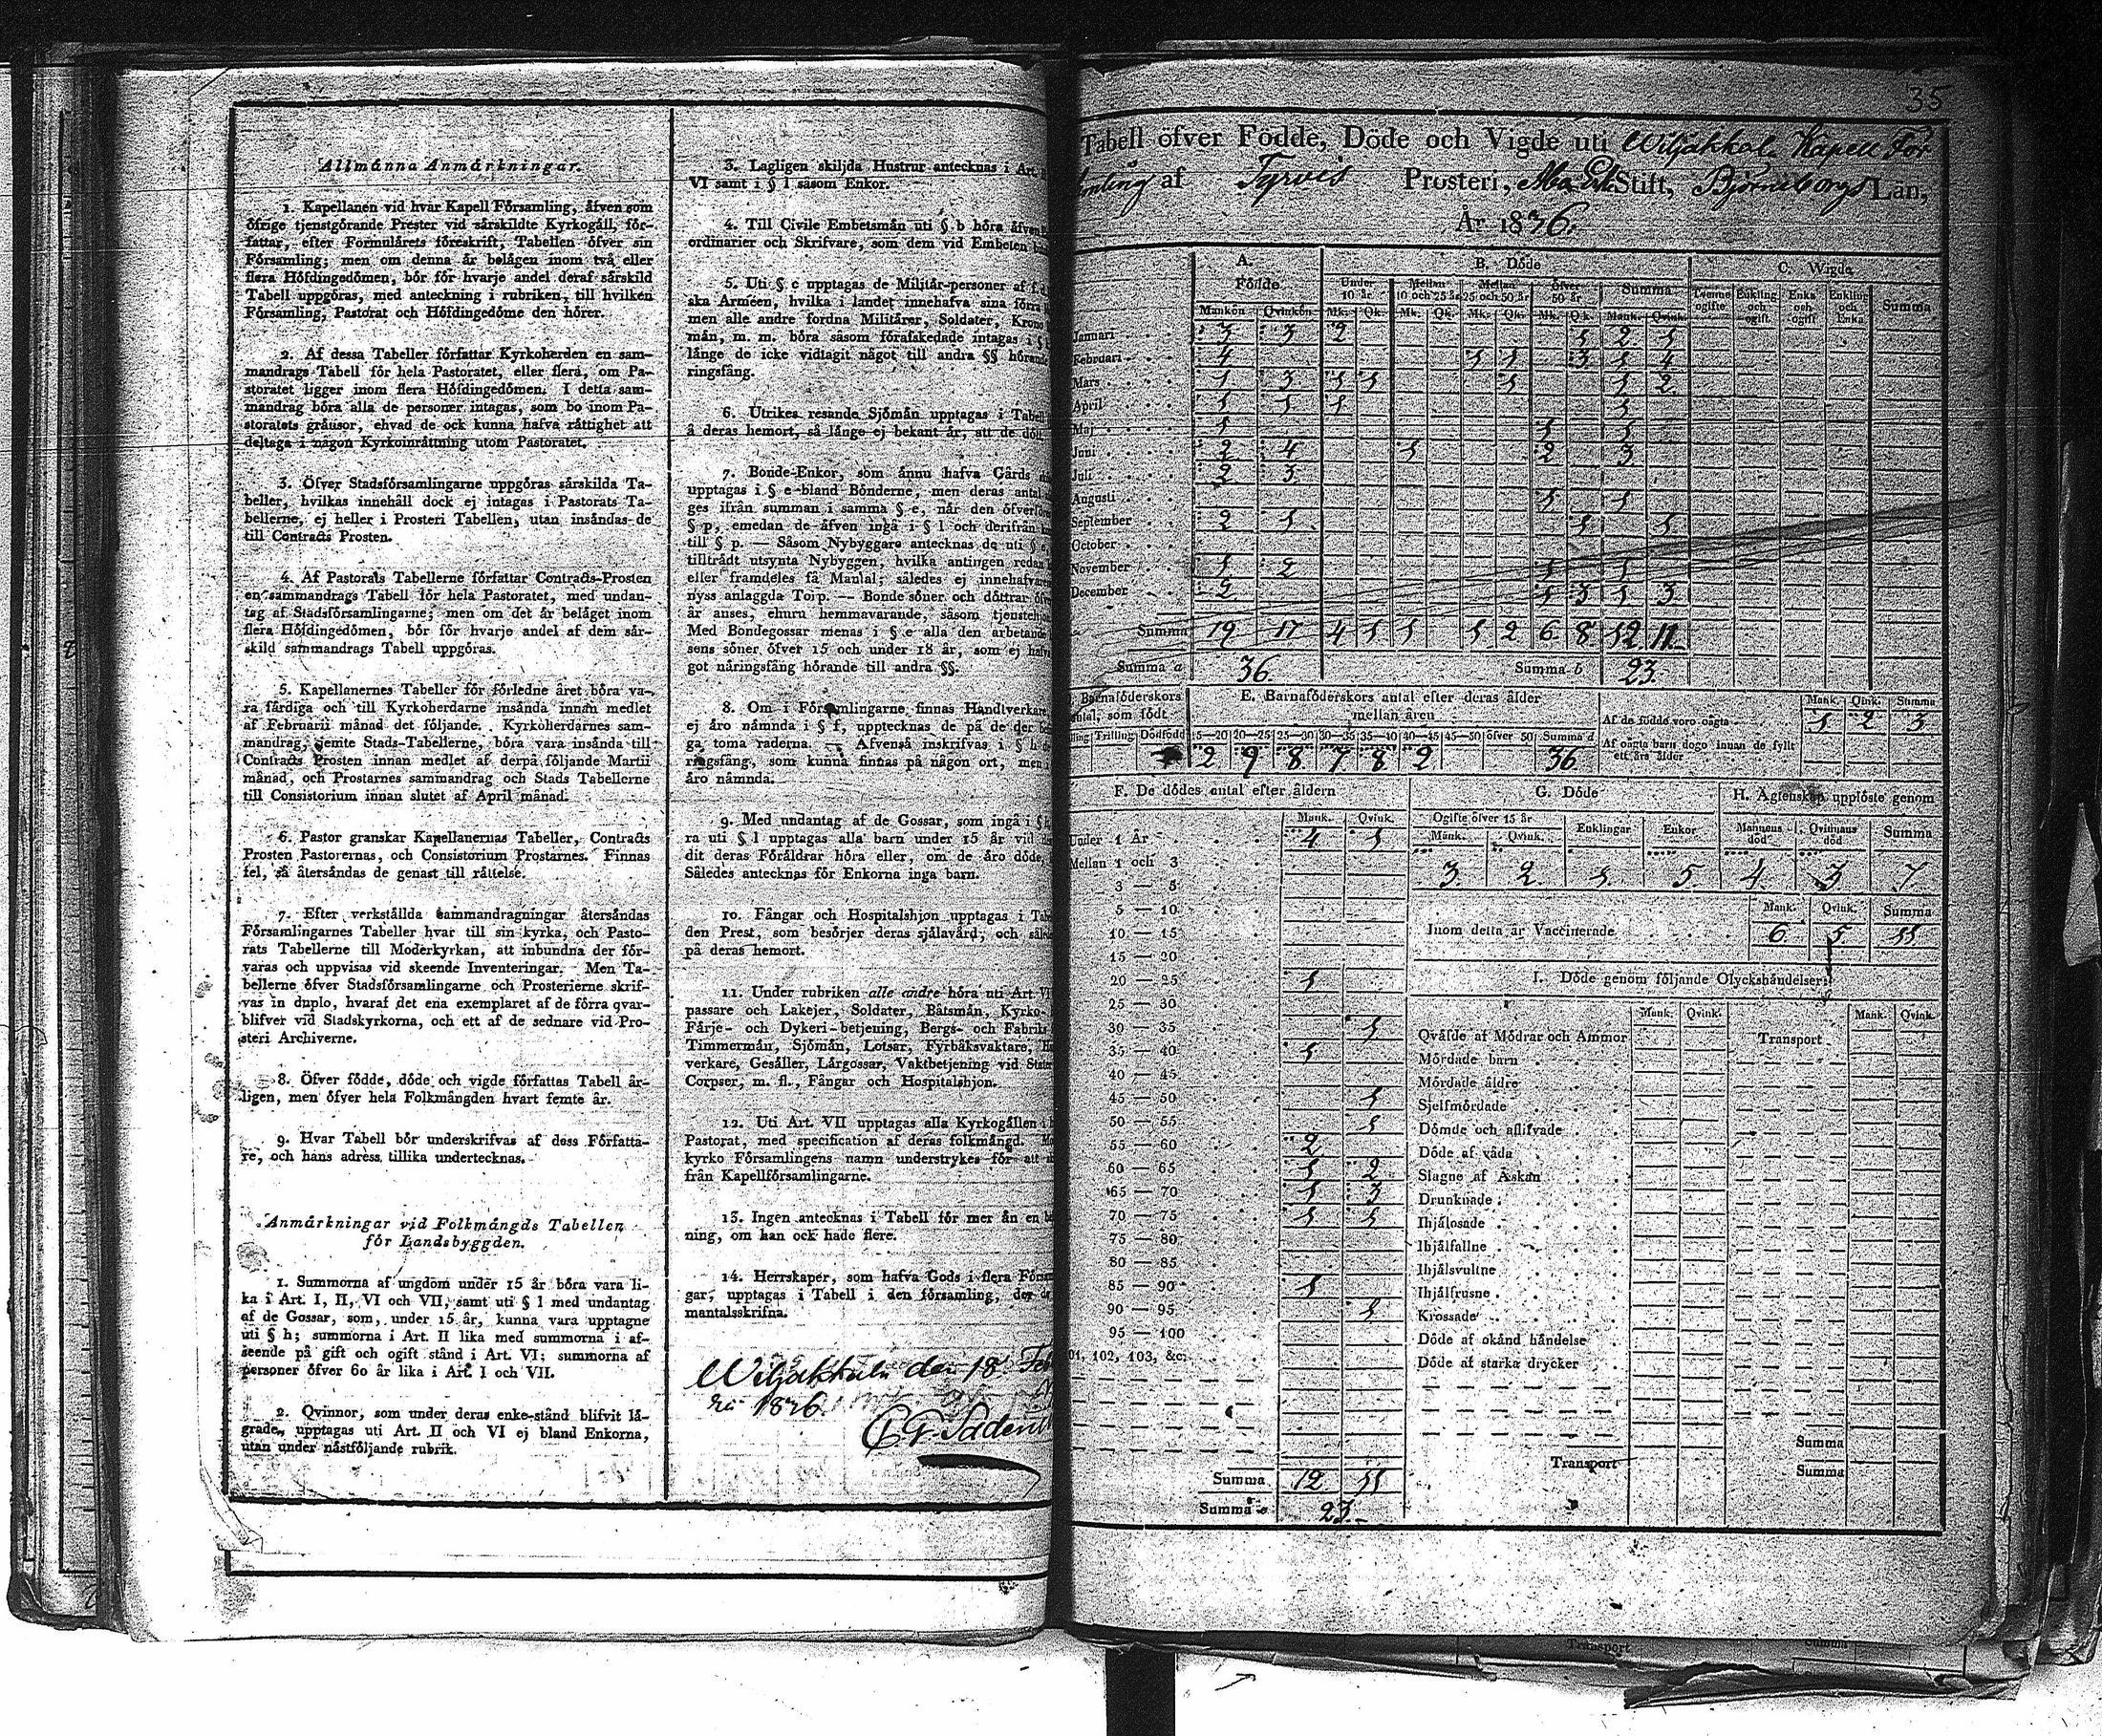 Allmänna Anmärkningar.
1. Kapellanen vid hvar Kapell Församling, äfven som
öfrige tjenstgörande Prester vid särskildte Kyrkogäll, för-
fattar, efter Formulärets föreskrift, Tabellen öfver sin
Församling; men om denna är belägen inom två eller
flera Höfdingedömen, bör för hvarje andel deraf särskild
Tabell uppgöras, med anteckning i rubriken, till hvilken
Församling, Pastorat och Höfdingedöme den hörer.
2. Af dessa Tabeller författar Kyrkoherden en sam-
mandrags Tabell för hela Pastoratet, eller flera, om Pa-
storatet ligger inom flera Höfdingedömen. I detta sam-
mandrag böra alla de personer intagas, som bo inom Pa-
storatets gränsor, ehvad de ock kunna hafva rättighet att
deltaga i någon Kyrkoinrättning utom Pastoratet.
3. Öfver Stadsförsamlingarne uppgöras särskilda Ta-
beller, hvilkas innehåll dock ej intagas i Pastorats Ta-
bellerne, ej heller i Prosteri Tabellen, utan insändas de
till Contracts Prosten.
4. Af Pastorats Tabellerne författar Contracts-Prosten
en sammandrags Tabell för hela Pastoratet, med undan-
tag af Stadsförsamlingarne; men om det är beläget inom
flera Höfdingedömen, bör för hvarje andel af dem sär-
skild sammandrags Tabell uppgöras.
5. Kapellanernes Tabeller för förledne året böra va-
ra färdiga och till Kyrkoherdarne insända innan medlet
af Februarii månad det följande. Kyrkoherdarnes sam-
mandrag, jemte Stads-Tabellerne, böra vara insända till
Contracts Prosten innan medlet af derpå följande Martii
månad, och Prostarnes sammandrag och Stads Tabellerne
till Consistorium innan slutet af April månad.
6. Pastor granskar Kapellanernas Tabeller, Contracts
Prosten Pastorernas, och Consistorium Prostarnes. Finnas
fel, så återsändas de genast till rättelse.
7. Efter verkställda sammandragningar återsändas
Församlingarnes Tabeller hvar till sin kyrka, och Pasto-
rats Tabellerne till Moderkyrkan, att inbundna der för-
varas och uppvisas vid skeende Inventeringar. Men Ta-
bellerne öfver Stadsförsamlingarne och Prosterierne skrif-
vas in duplo, hvaraf det ena exemplaret af de förra qvar-
blifver vid Stadskyrkorna, och ett af de sednare vid Pro-
steri Archiverne.
8. Öfver födde, döde och vigde författas Tabell år-
ligen, men öfver hela Folkmängden hvart femte år.
9. Hvar Tabell bör underskrifvas af dess Författa-
re, och hans adress tillika undertecknas.
Anmärkningar vid Folkmängds Tabellen
för Landsbyggden.
1. Summorna af ungdom under 15 år böra vara li-
ka i Art. I, II, VI och VII, samt uti § l med undantag
af de Gossar, som, under 15 år, kunna vara upptagne
uti § h; summorna i Art. II lika med summorna i af-
seende på gift och ogift stånd i Art. VI; summorna af
personer öfver 60 år lika i Art. I och VII.
2. Qvinnor, som under deras enke-stånd blifvit lä-
grade, upptagas uti Art. II och VI ej bland Enkorna,
utan under nästföljande rubrik.
3. Lagligen skiljda Hustrur antecknas i Art.
VI samt i § l såsom Enkor.
4. Till Civile Embetsmän uti § b höra äfven
ordinarier och Skrifvare, som dem vid Embeten
5. Uti § c upptagas de Militär-personer af
ska Arméen, hvilka i landet innehafva sina förra
men alle andre fordna Militärer, Soldater, Krono
män, m. m. böra såsom förafskedade intagas i §
länge de icke vidtagit något till andra §§ hörande
ringsfång.
6. Utrikes resande Sjömän upptagas i Tabell
å deras hemort, så länge ej bekant är, att de dött
7. Bonde-Enkor, som ännu hafva Gårds
upptagas i § e bland Bönderne, men deras antal
ges ifrån summan i samma § e, när den öfverföres
§ p, emedan de äfven ingå i § l och derifrån
till § p. — Såsom Nybyggare antecknas de uti §
tillträdt utsynta Nybyggen, hvilka antingen redan
eller framdeles få Mantal; således ej innehafvare
nyss anlaggda Torp. — Bonde söner och döttrar
är anses, ehuru hemmavarande, såsom tjenstehjon
Med Bondegossar menas i § e alla den arbetande
sens söner öfver 15 och under 18 år, som ej hafva
got näringsfång hörande till andra §§.
8. Om i Församlingarne finnas Handtverkare
ej äro nämnda i § f, upptecknas de på de der
ga toma raderna. — Äfvenså inskrifvas i § h
ringsfång, som kunna finnas på någon ort, men
äro nämnda.
9. Med undantag af de Gossar, som ingå i §
ra uti § l upptagas alla barn under 15 år vid
dit deras Föräldrar höra eller, om de äro döde,
Således antecknas för Enkorna inga barn.
10. Fångar och Hospitalshjon upptagas i
den Prest, som besörjer deras själavård, och
på deras hemort.
11. Under rubriken alle andre höra uti Art. VI
passare och Lakejer, Soldater, Båtsmän, Kyrko-
Färje- och Dykeri-betjening, Bergs- och Fabriks
Timmermän, Sjömän, Lotsar, Fyrbåksvaktare,
verkare, Gesäller, Lärgossar, Vaktbetjening vid
Corpser, m. fl., Fångar och Hospitalshjon.
12. Uti Art. VII upptagas alla Kyrkogällen i
Pastorat, med specification af deras folkmängd.
kyrko Församlingens namn understrykes för att
från Kapellförsamlingarne.
13. Ingen antecknas i Tabell för mer än en
ning, om han ock hade flere.
14. Herrskaper, som hafva Gods i flera
gar, upptagas i Tabell i den församling, der
mantalsskrifna.
Wiljakkala den 18
1836.
35
Tabell öfver Födde, Döde och Vigde uti Wiljakkala Kapell För
samling af Tyrvis Prosteri, Åbo Erke Stift, Björneborgs Län,
År 1836.
A. Födde B. Döde C. Wigde
Under 10 år. Mellan 10 och 25 år Mellan 25 och 50 år Öfver 50 år. Summa Tvenne ogifte Enkling och ogift. Enka och ogift Enkling och Enka Summa
Mankön Qvinkön Mk. Qk. Mk. Qk. Mk. Qk. Mk. Qk. Mank. Qvink.
Januari 3 3 2 1 2 1
Februari 4 1 1 3 1 4
Mars 1 3 1 1 1 1 2
April 1 1 1 1
Maj 1 1 1
Juni 2 4 1 2 3
Juli 2 3
Augusti 1 1
September 2 1 1 1
October
November 1 2 1 1
December 2 1 3 1 3
Summa 19 17 4 1 1 1 2 6 8 12 11
Summa a 36 Summa b 23
Barnaföderskors E. Barnaföderskors antal efter deras ålder
antal, som födt mellan åren
Trilling Dödfödd 15—20 20—25 25—30 30—35 35—40 40—45 45—50 öfver 50 Summa d
2 9 8 7 8 2 36
Mank. Qink. Summa
Af de födde voro oägta 1 2 3
Af oägta barn dogo innan de fyllt
ett års ålder
F. De dödes antal efter åldern
Mank. Qvink.
Under 1 År 4 1
Mellan 1 och 3
3 — 5
5 — 10
10 — 15
15 — 20
20 — 25 1
25 — 30
30 — 35 1
35 — 40 1
40 — 45
45 — 50 1
50 — 55 1
55 — 60 2
60 — 65 1 2
65 — 70 1 3
70 — 75 1 1
75 — 80
80 — 85
85 — 90 1
90 — 95 1
95 — 100
101, 102, 103, &c.
Summa 12 11
Summa 23
G. Döde H. Ägtenskap upplöste genom
Ogifte öfver 15 år Enklingar Enkor Mannens död Qvinnans död Summa
Mank. Qvink.
3 2 1 5 4 3 7
Mank. Qvink. Summa
Inom detta år Vaccinerade 6 5 11
I. Döde genom följande Olyckshändelser:
Mank. Qvink. Mank. Qvink.
Qväfde af Mödrar och Ammor Transport
Mördade barn
Mördade äldre
Sjelfmördade
Dömde och aflifvade
Döde af våda
Slagne af Åskan
Drunknade
Ihjälosade
Ihjälfallne
Ihjälsvultne
Ihjälfrusne
Krossade
Döde af okänd händelse
Döde af starka drycker
Summa
Transport Summa